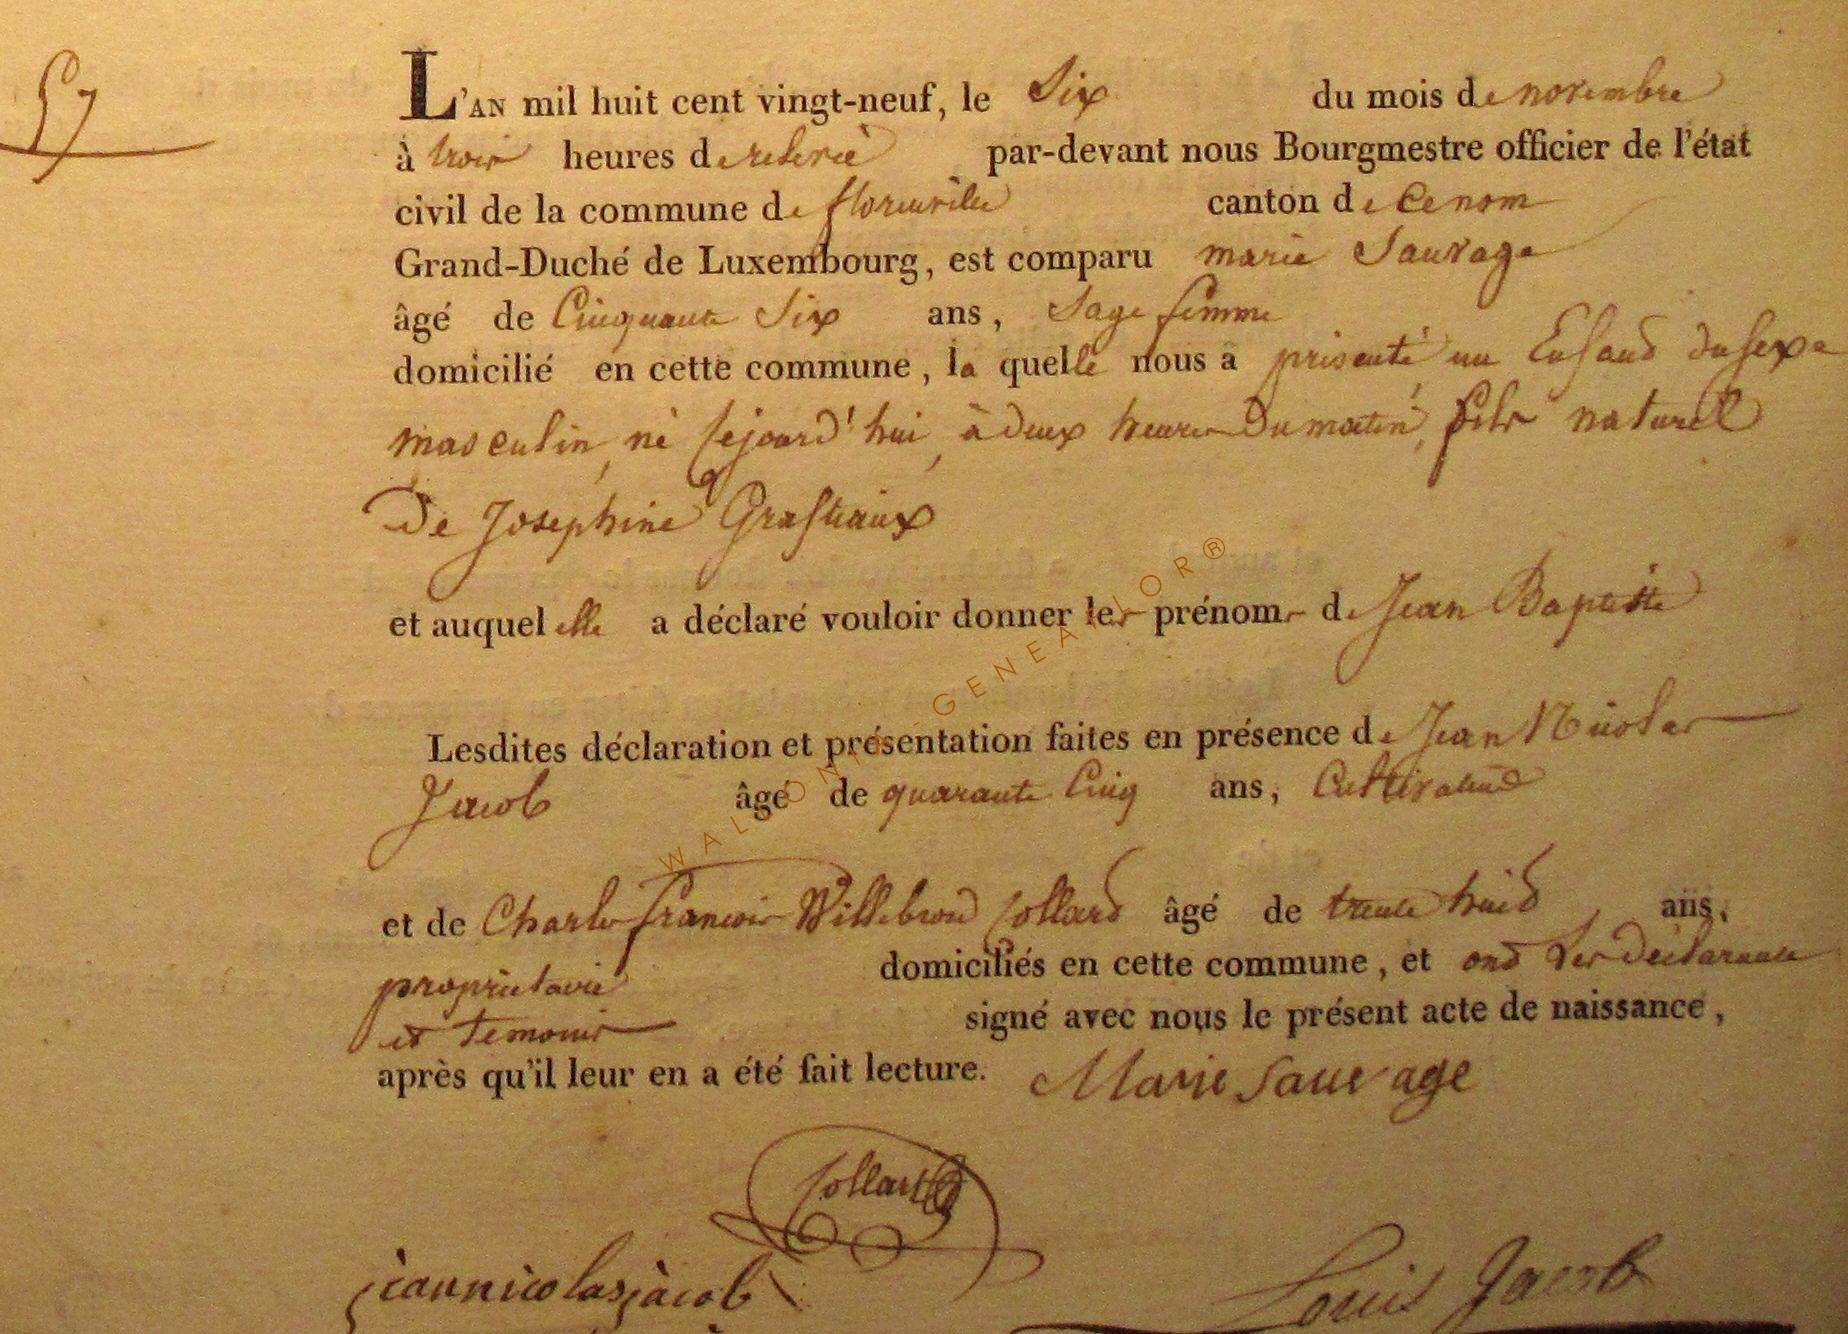 57
L'AN mil huit cent vingt-neuf, le Six du mois de novembre
à trois heures de relevée par-devant nous Bourgmestre officier de l'état
civil de la commune de florenville canton de
Grand-Duché de Luxembourg, est comparu marie Sauvage
âgé de Cinquante Six ans, Sage femme
domicilié en cette commune, la quelle nous a présenté un Enfand du sexe
masculin, né cejourd'hui, à deux heures du matin, fils naturel
De Josephine Grastiaux
et auquel elle a déclaré vouloir donner les prénoms de Jean Baptiste
Lesdites déclaration et présentation faites en présence de Jean Nicolas
Jacob âgé de quarante Cinq ans, Cultivateur
et de Charles francois Willebrord Collard âgé de trente huid ans,
propriétaire domiciliés en cette commune, et ond les déclarante
et temoins signé avec nous le présent acte de naissance,
après qu'il leur en a été fait lecture. Marie Sauvage
Collard
jean nicolas jacob Louis Jacob
WALLONIA GENEALOR®